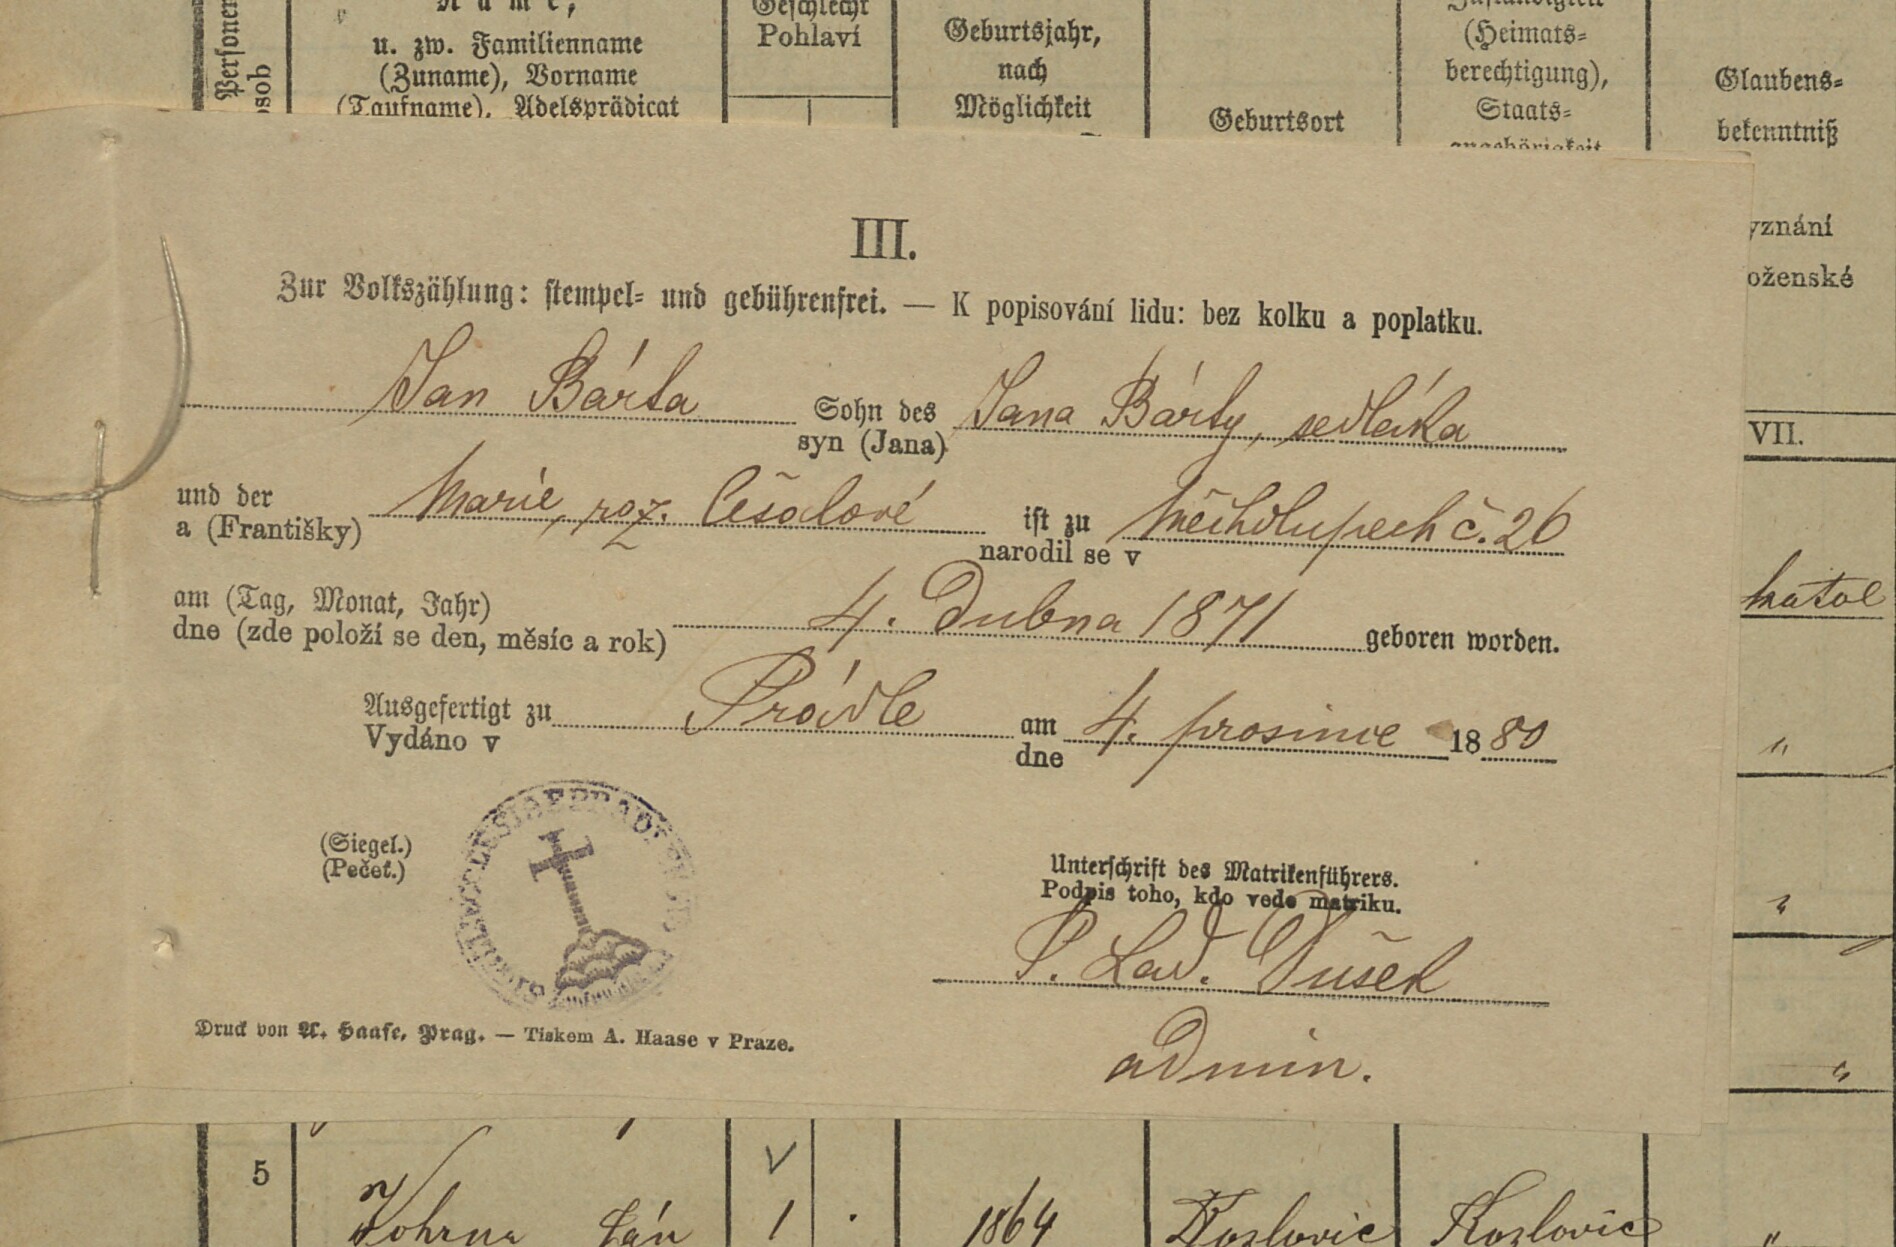 Personen
osob
Name,
u. zw. Familienname
(Zuname), Vorname
(Taufname), Adelsprädicat
Geschlecht
Pohlaví
Geburtsjahr,
nach
Möglichkeit
Geburtsort
Zuständigkeit
(Heimats-
berechtigung),
Staats-
angehörigkeit
Glaubens-
bekenntniß
yznání
oženské
VII.
III.
Zur Volkszählung: stempel- und gebührenfrei. — K popisování lidu: bez kolku a poplatku.
Jan Bárta Sohn des Jana Bárty, sedláka
syn (Jana)
und der Marie, roz. Češalové ist zu Měcholupech č. 26
a (Františky) narodil se v
am (Tag, Monat, Jahr) 4. Dubna 1871 geboren worden.
dne (zde položí se den, měsíc a rok)
Ausgefertigt zu Prádle am 4. prosince 1880
Vydáno v dne
(Siegel.)
(Pečeť.)
Unterschrift des Matrikenführers.
Podpis toho, kdo vede matriku.
P. Lad. Dušek
admin.
Druck von A. Haase, Prag. — Tiskem A. Haase v Praze.
katol
"
"
"
5 Ján 1 . 1864 Kozlovic Kozlovic "